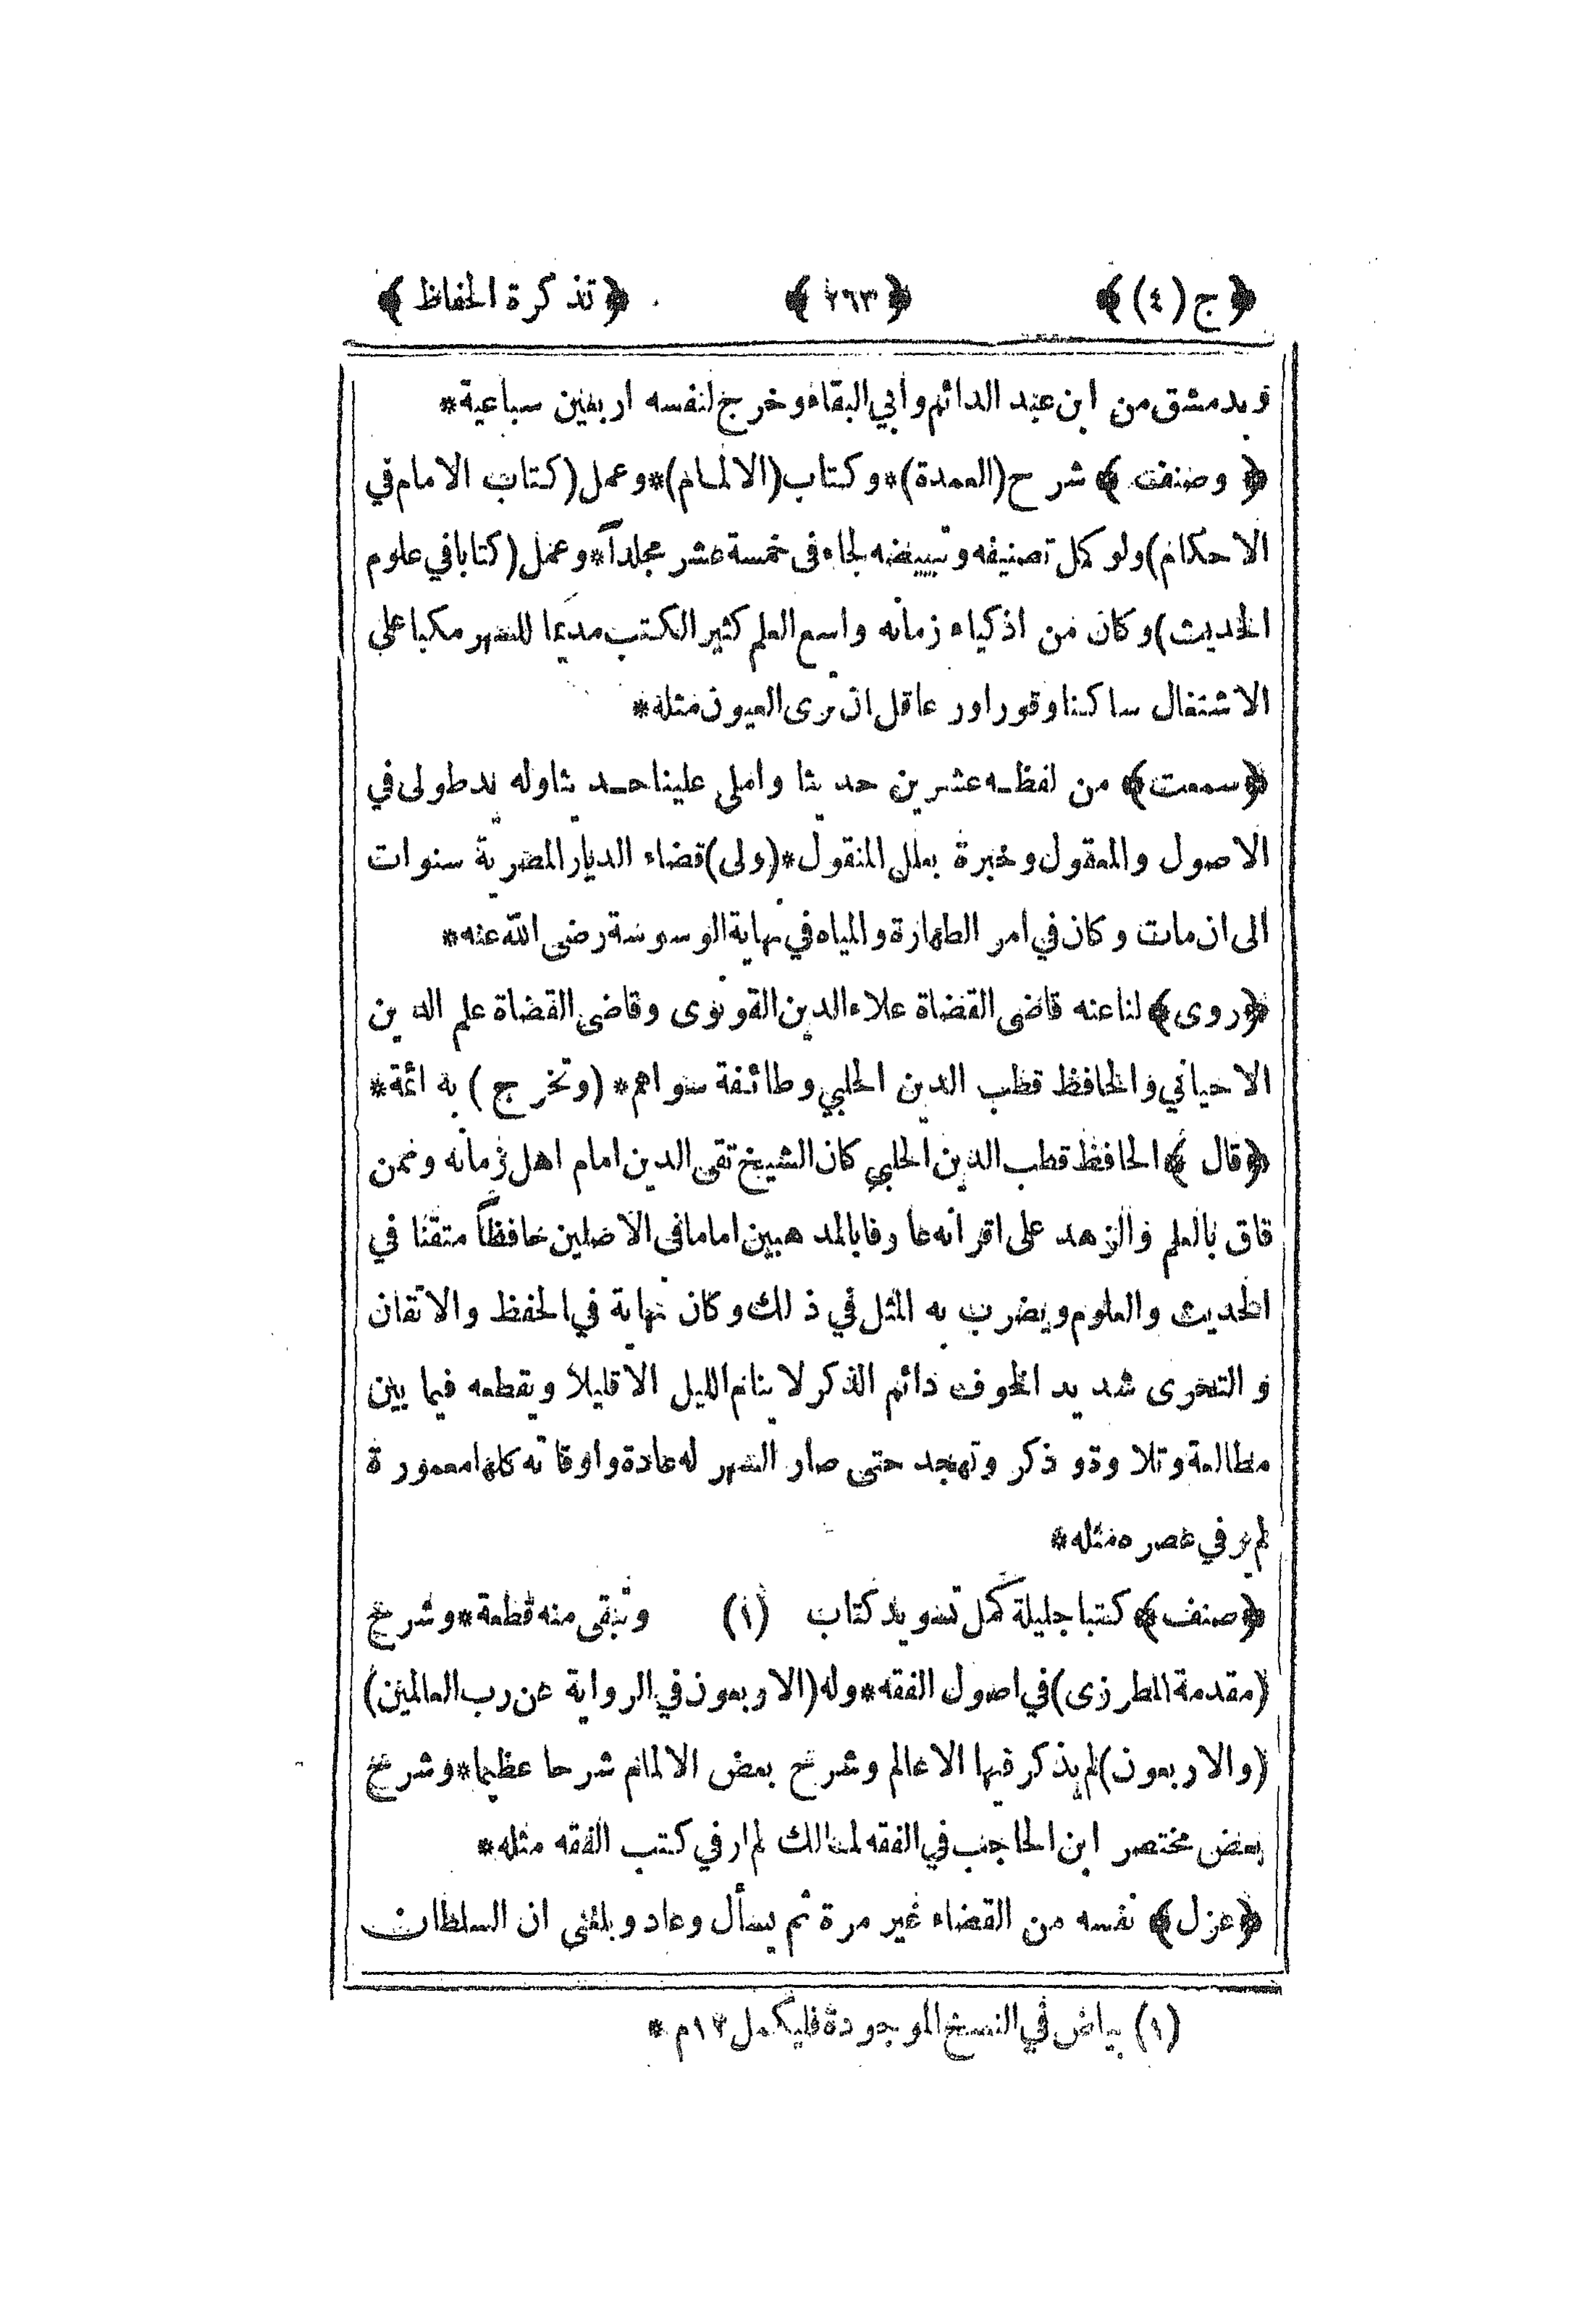 ﴿ج (٤)﴾ ﴿٢٦٣﴾ ﴿تذكرة الحفاظ﴾
وبدمشق من ابن عبد الدائم وأبي البقاء وخرج لنفسه اربعين سباعية*
﴿وصنف﴾ شرح (العمدة)* وكتاب (الالمام)* وعمل (كتاب الامام في
الاحكام) ولو كمل تصنيفه وتبييضه لجاء فى خمسة عشر مجلداً* وعمل (كتابا في علوم
الحديث) وكان من اذكياء زمانه واسع العلم كثير الكتب مديما للسهر مكبا على
الاشتغال ساكنا وقورا ورعا قل ان ترى العيون مثله*
﴿سمعت﴾ من لفظه عشرين حديثا واملى علينا حديثا وله يد طولى في
الاصول والمعقول وخبرة بعلل المنقول* (ولى) قضاء الديار المصرية سنوات
الى ان مات وكان في امر الطهارة والمياه في نهاية الوسوسة رضى الله عنه*
﴿روى﴾ لنا عنه قاضى القضاة علاء الدين القونوى وقاضى القضاة علم الدين
الاحيائي والحافظ قطب الدين الحلبي وطائفة سواهم* (وتخرج) به ائمة*
﴿قال﴾ الحافظ قطب الدين الحلبي كان الشيخ تقى الدين امام اهل زمانه وممن
فاق بالعلم والزهد على اقرانه عارفا بالمذهبين اماما فى الاصلين حافظاً متقنا في
الحديث والعلوم ويضرب به المثل في ذلك وكان نهاية في الحفظ والاتقان
والتحرى شديد الخوف دائم الذكر لا ينام الليل الا قليلا ويقطعه فيما بين
مطالعة وتلاوة وذكر وتهجد حتى صار السهر له عادة واوقاته كلها معمورة
لم ير في عصره مثله*
﴿صنف﴾ كتبا جليلة كمل تسويد كتاب (١) وتبقى منه قطعة* وشرح
(مقدمة المطرزى) في اصول الفقه* وله (الاربعون في الرواية عن رب العالمين)
(والاربعون) لم يذكر فيها الا عالم وشرح بعض الالمام شرحا عظيما* وشرح
بعض مختصر ابن الحاجب في الفقه لمالك لم ار في كتب الفقه مثله*
﴿عزل﴾ نفسه من القضاء غير مرة ثم يسأل وعاد وبلغنى ان السلطان
(١) بياض في النسخ الموجودة فليكمل ١٢ م*